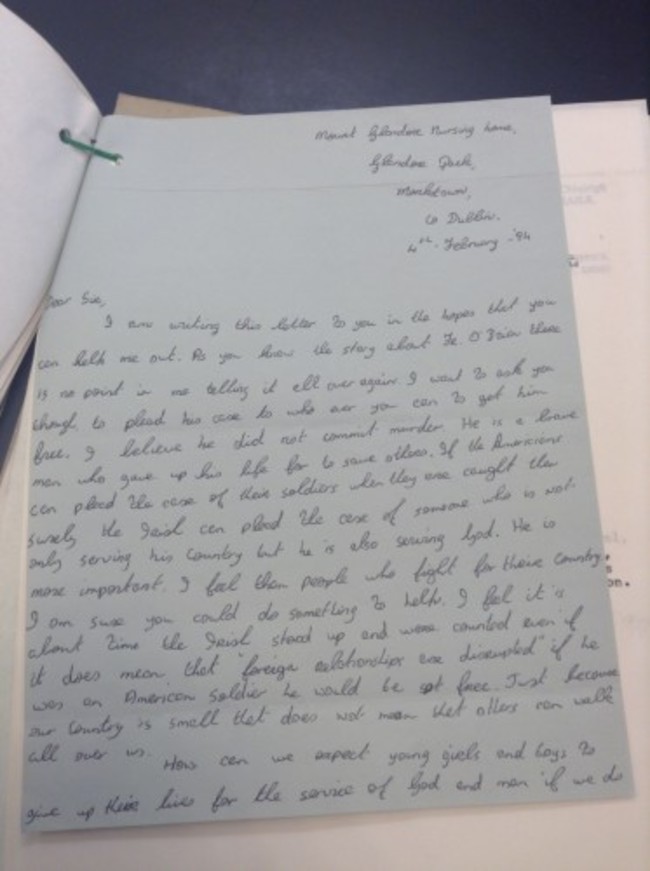 Mount Glendore Nursing home,
Glendore Park,
Monkstown,
Co Dublin.
4th February -'94
Dear Sir,
I am writing this letter to you in the hopes that you
can help me out. As you know the story about Fr. O'Brien there
is no point in me telling it all over again. I want to ask you
though, to plead his case to who ever you can to get him
free. I believe he did not commit murder. He is a brave
man who gave up his life for to save others. If the Americans
can plead the case of their soldiers when they are caught then
surely the Irish can plead the case of someone who is not
only serving his country but he is also serving God. He is
more important. I feel than people who fight for their country.
I am sure you could do something to help. I feel it is
about time the Irish stood up and were counted even if
it does mean that "foreign relationships are disrupted" if he
was an American soldier he would be set free. Just because
our country is small that does not mean that others can walk
all over us.
How can we expect young girls and boys to
give up their lives for the service of God and man if we do